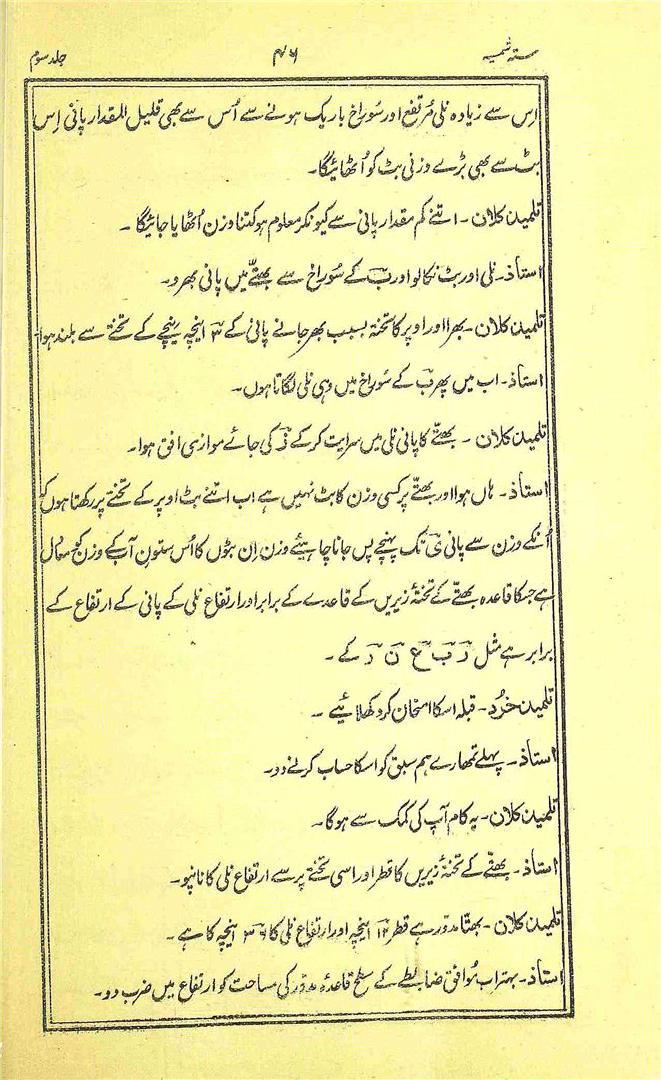 ستہ شمسیہ ۴۶ جلد سوم
اِس سے زیادہ نلی مُرتفع اور سُوراخ باریک ہونے سے اُس سے بھی قلیل المقدار پانی اِس
بٹ سے بھی بڑے وزنی بٹ کو اُٹھائیگا۔
تلمیذ کلان۔ اتنے کم مقدار پانی سے کیونکر معلوم ہو کتنا وزن اُٹھایا جائیگا۔
استاذ۔ نلی اور بٹ نکالو اور ب کے سُوراخ سے بھتّے میں پانی بھر دو۔
تلمیذ کلان۔ بھرا اور اوپر کا تختہ بسبب بھر جانے پانی کے ۳ اینچہ نیچے کے تختے سے بلند ہوا۔
استاذ۔ اب میں پھر ب کے سُوراخ میں وہی نلی لگاتا ہوں۔
تلمیذ کلان۔ بھتّے کا پانی نلی میں سرایت کر کے ف کی جائے موازی افق ہوا۔
استاذ۔ ہاں ہوا اور بھتّے پر کسی وزن کا بٹ نہیں ہے اب اتنے بٹ اوپر کے تختے پر رکھتا ہوں کہ
اُنکے وزن سے پانی ی تک پہنچے پس جاننا چاہیئے وزن اِن بٹوں کا اُس ستون آب کے وزن کے معادل
ہے جسکا قاعدہ بھتّے کے تختۂ زیریں کے قاعدے کے برابر اور ارتفاع نلی کے پانی کے ارتفاع کے
برابر ہے مثل ر ب ع ن د کے۔
تلمیذ خُرد۔ قبلہ اسکا امتحان کر دکھلائیے۔
استاذ۔ پہلے تمھارے ہم سبق کو اسکا حساب کرنے دو۔
تلمیذ کلان۔ یہ کام آپ کی کمک سے ہوگا۔
استاذ۔ بھتّے کے تختۂ زیریں کا قطر اور اسی تختے پر سے ارتفاع نلی کا ناپو۔
تلمیذ کلان۔ بھتّا مدوّر ہے قطر ۱۲ اینچہ اور ارتفاع نلی کا ۳۶ اینچہ کا ہے۔
استاذ۔ بہتر اب مُوافق ضابطے کے سطح قاعدۂ مدوّر کی مساحت کو ارتفاع میں ضرب دو۔